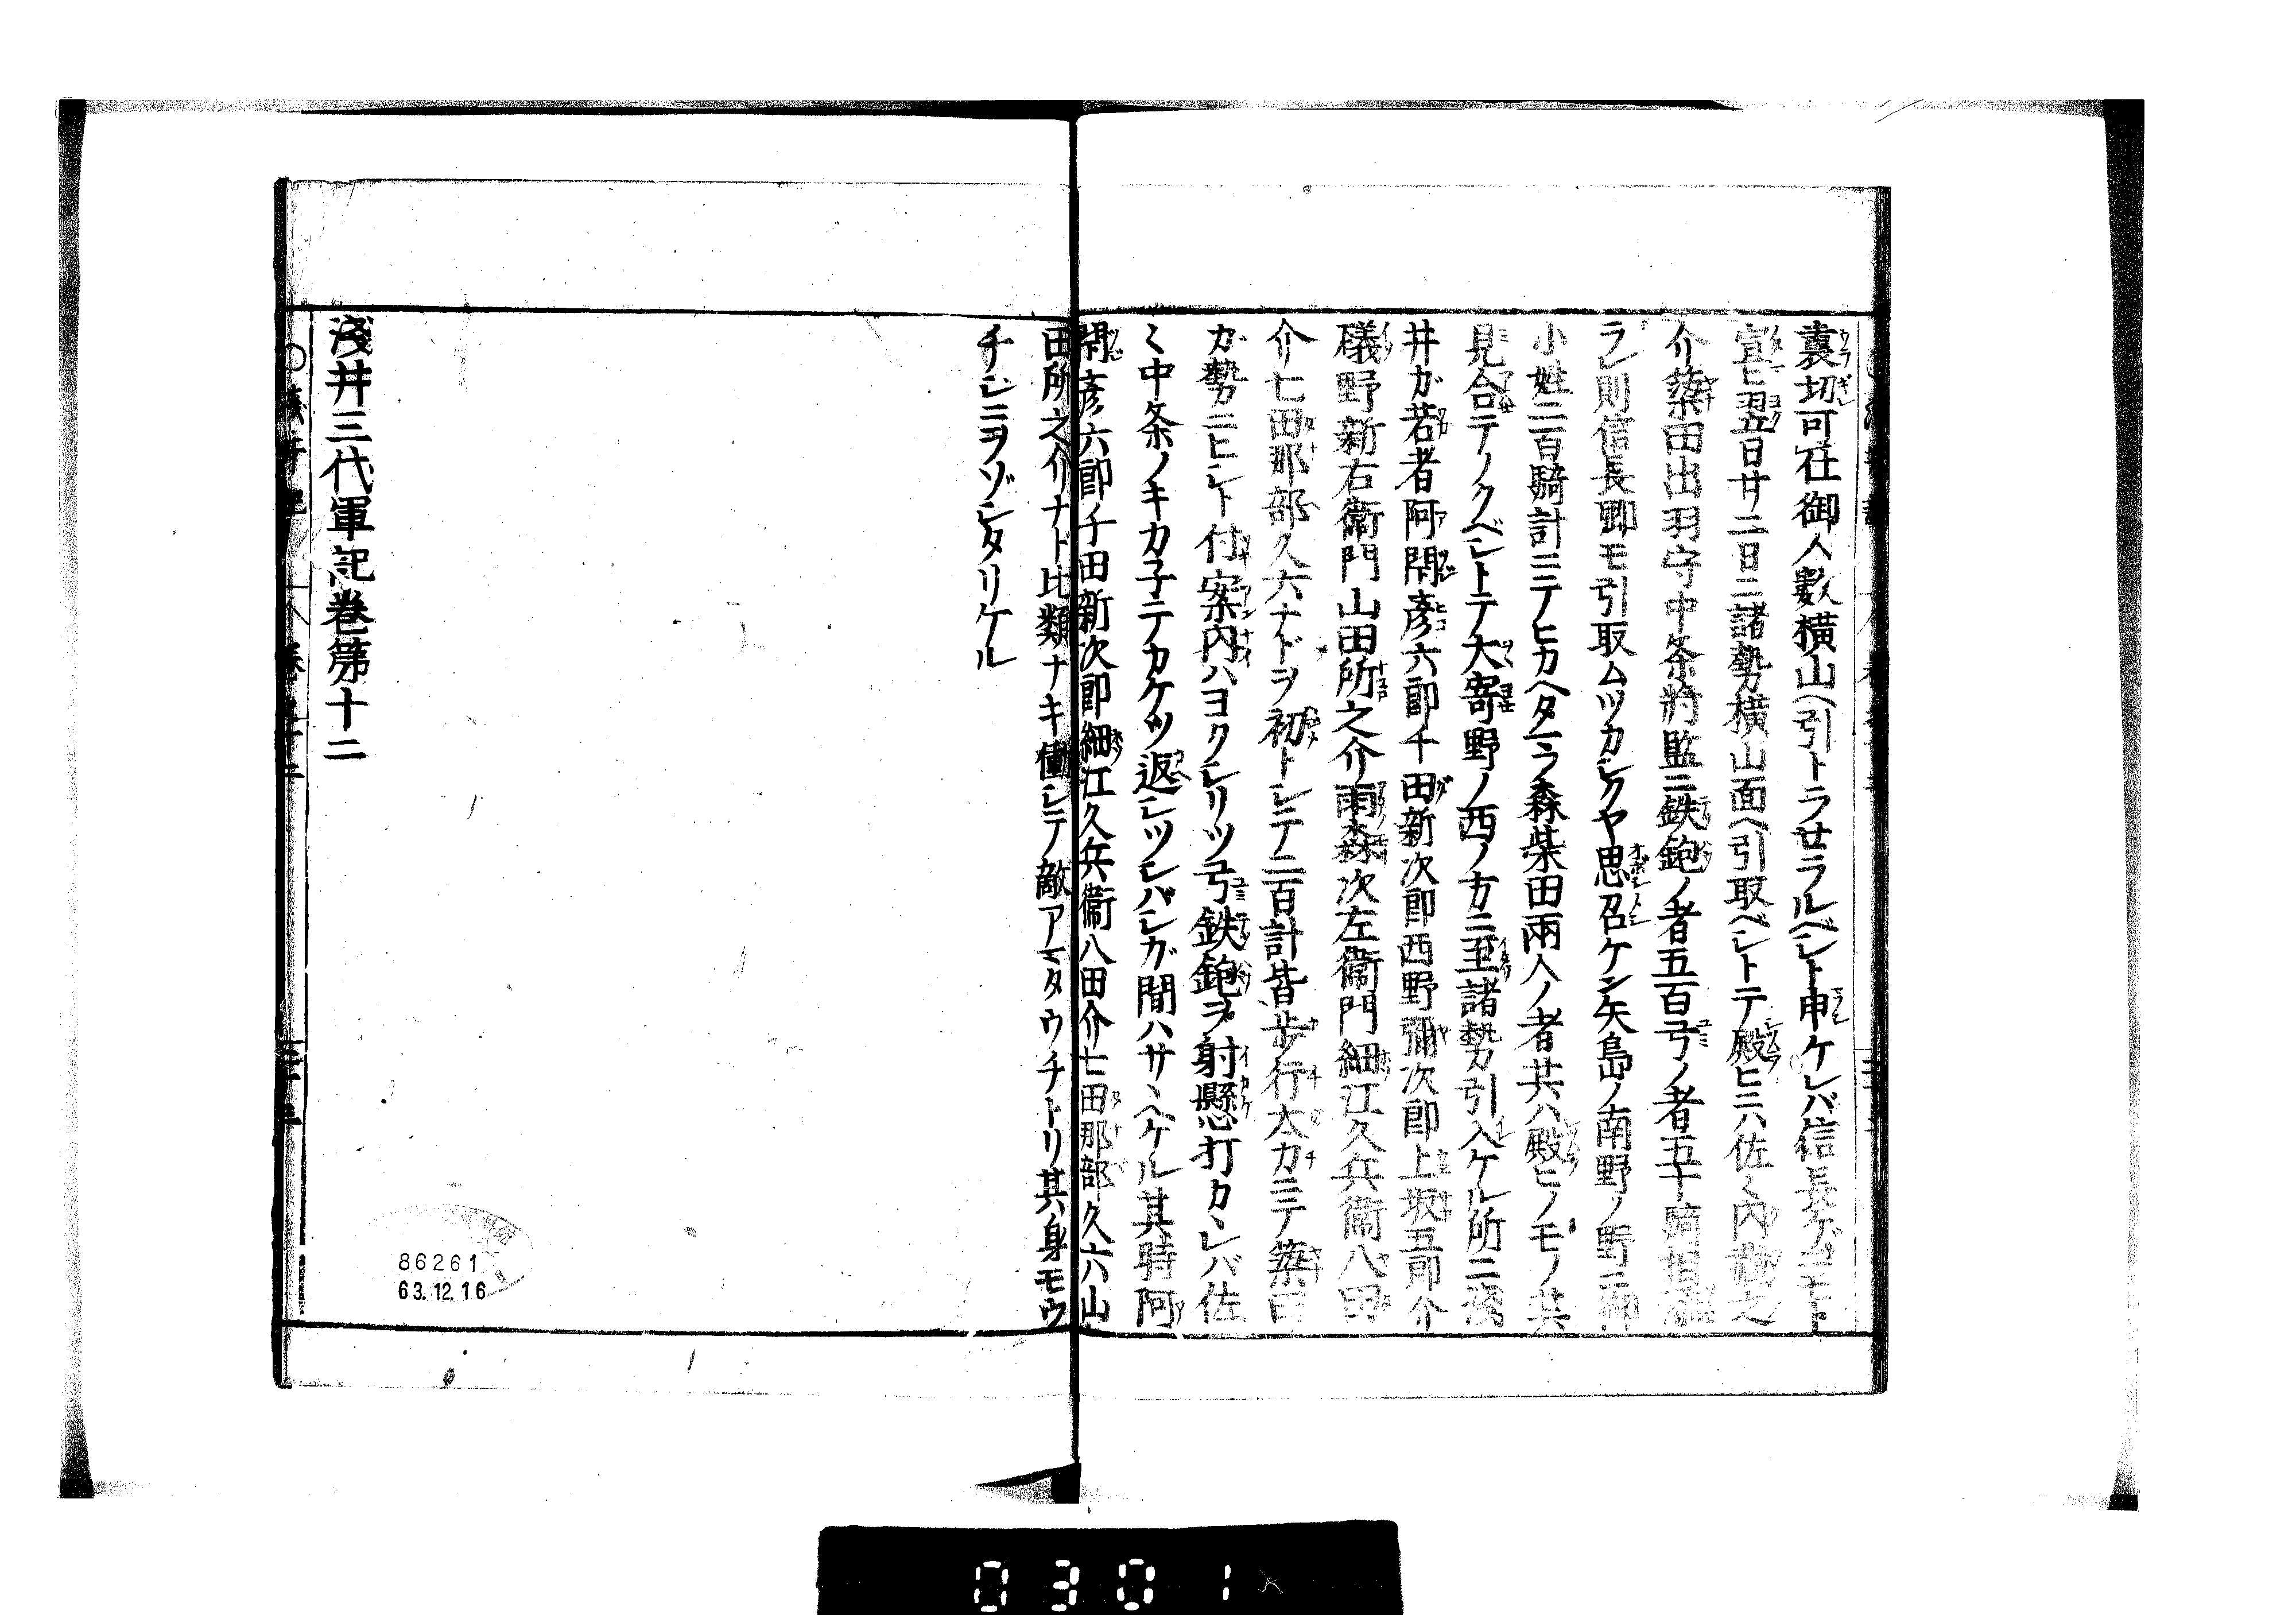 裏切可仕御人数横山ヘ引トラサラルベシト申ケレバ信長ゲニモト
宣ヒ翌日廿二日ニ諸勢横山面ヘ引取ベシトテ殿ヒニハ佐々内蔵之
介簗田出羽守中条将監ニ鉄鉋ノ者五百弓ノ者五十騎相
ラレ則信長卿モ引取ムツカシクヤ思召ケン矢島ノ南野ノ野ニ御
小姓二百騎計ニテヒカヘタマフ森柴田両人ノ者共ハ殿ヒノモノ共
見合テノクベシトテ大寄野ノ西ノ方ニ至諸勢引入ケル所ニ浅
井ガ若者阿閉彦六郎千田新次郎西野彌次郎上坂五郎介
礒野新右衛門山田所之介雨森次左衛門細江久兵衛八田
介七田那部久六ナドヲ初トシテ二百計皆歩行太刀ニテ簗田
ガ勢ニヒシト付案内ハヨクシリツ弓鉄鉋ヲ射懸打カシバ佐
々中条ノキカ子テカケツ返シツシバシガ間ハサヽヘケル其時阿
閉彦六郎千田新次郎細江久兵衛八田介七田那部久六山
田所之介ナド比類ナキ働シテ敵アマタウチトリ其身モウ
チジニヲゾシタリケル
淺井三代軍記巻第十二
86261
63.12.16
0301